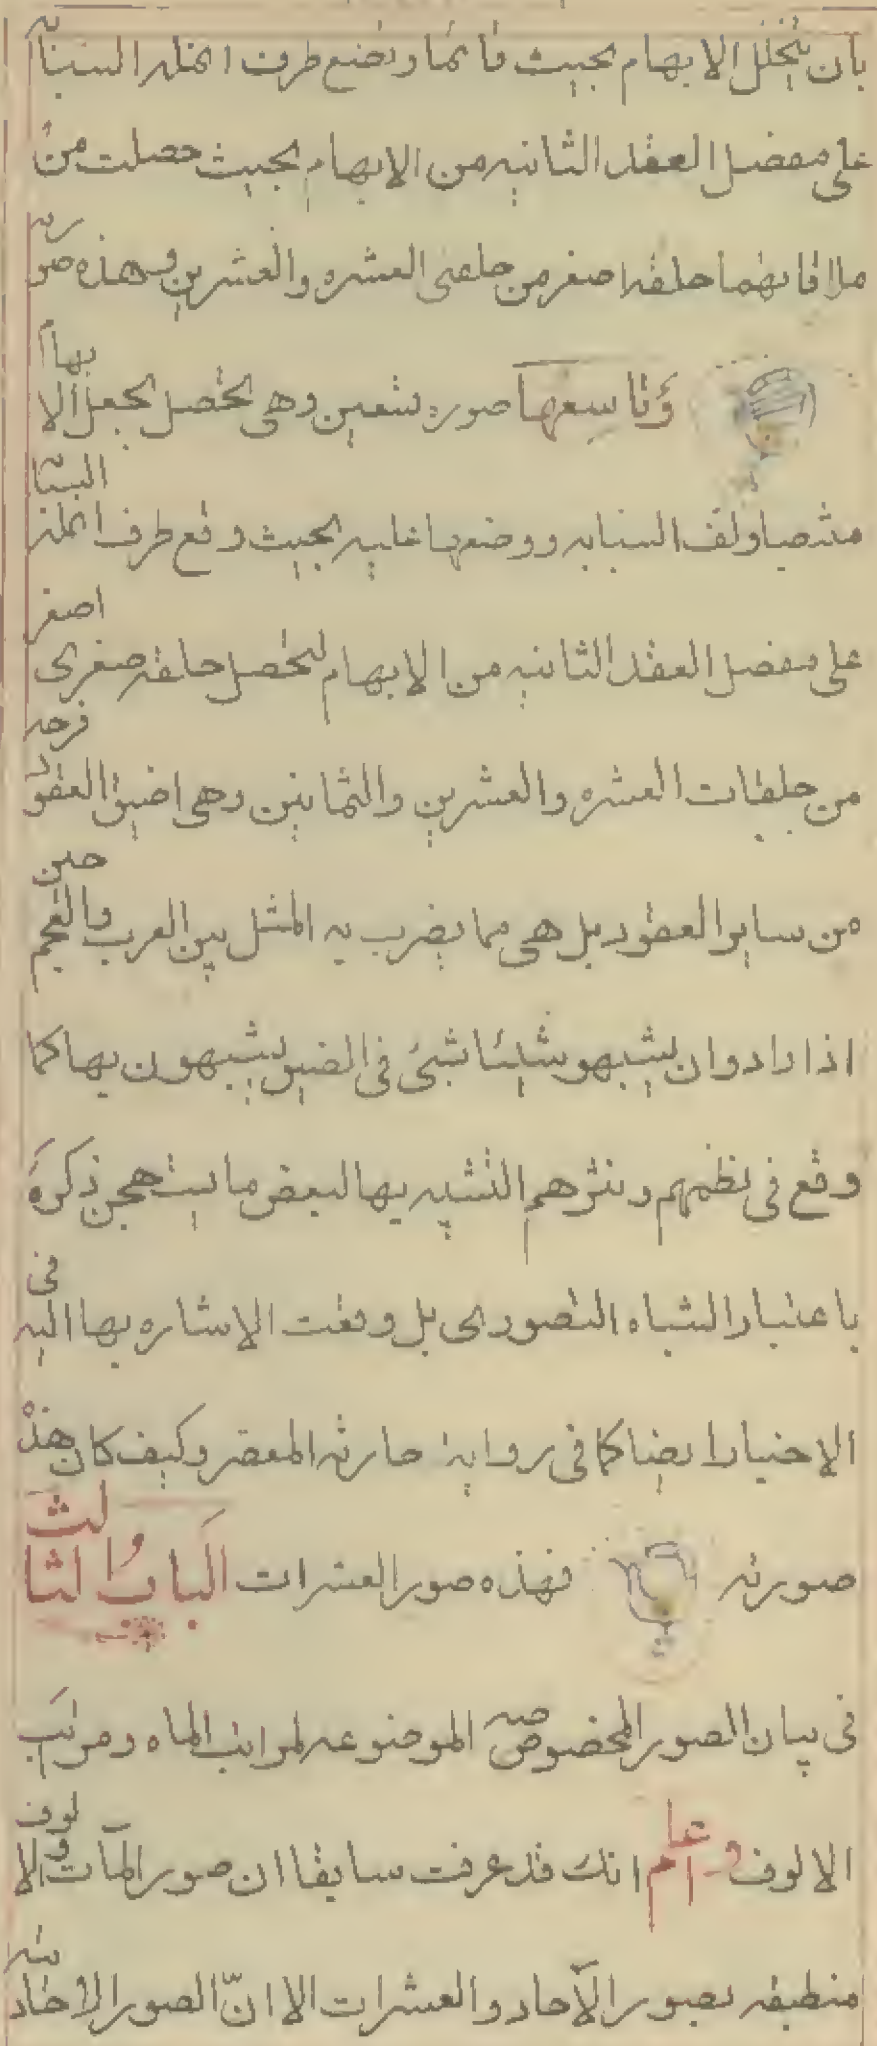 بان يتخلل الابهام بحيث قائما و تضع طرف انملة السبابة
على مفصل العقد الثانيه من الابهام بحيث حصلت من
ملاقاتهما حلقة اصغر من حلقتى العشره والعشرين وهذه صورته
وتاسعها صوره تسعين وهى تحصل بجعل الابهام
منتصبا ولف السبابه ووضعها عليه بحيث وقع طرف انملة السبابه
على مفصل العقد الثانيه من الابهام ليحصل حلقه صغرى اصغر
من حلقات العشره والعشرين والثمانين وهى اضيق العقود فرجه
من ساير العقود بل هى مما يضرب به المثل بين العرب والعجم حين
اذا رادوا ن يشبهو شيئا بشئ فى الضيق يشبهون بها كما
وقع فى نظمهم و نثرهم التشبيه بها لبعض ما يستهجن ذكره
باعتبار الشباه التصورى بل وقعت الاشاره بها اليه فى
الاخبار ايضا كما فى رواية حارثه المعصر وكيف كان هذه
صورته فهذه صور العشرات الباب الثالث
فى بيان الصور المخصوصه الموضوعه لمراتب الماه ومراتب
الالوف واعلم انك قد عرفت سابقا ان صور المآت والالوف
منطبقه بصور الآحاد والعشرات الا انّ الصور الاحاديه